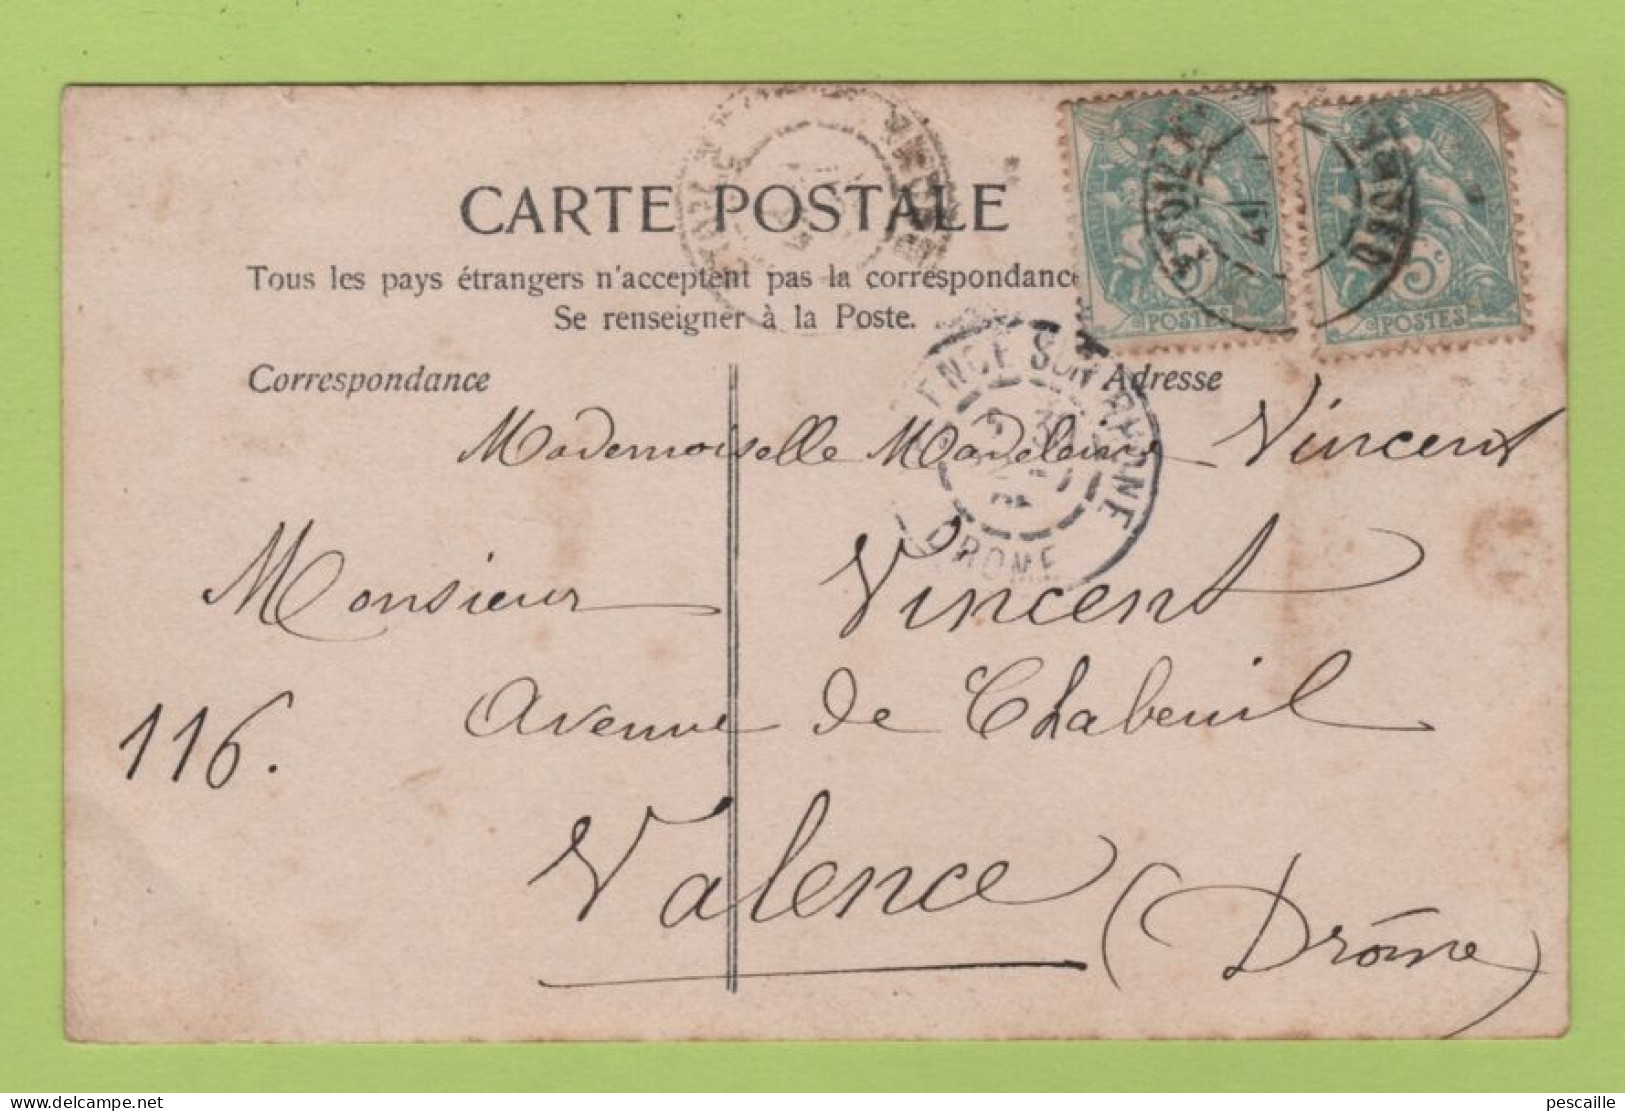 CARTE POSTALE
Tous les pays étrangers n'acceptent pas la correspondance
Se renseigner à la Poste.
Correspondance
Adresse
5c
POSTES
5c
POSTES
ENCE SUR RHONE
DROME
Mademoiselle Madeleine Vincent
Monsieur Vincent
116. Avenue de Chabeuil
Valence (Drôme)
pescaille